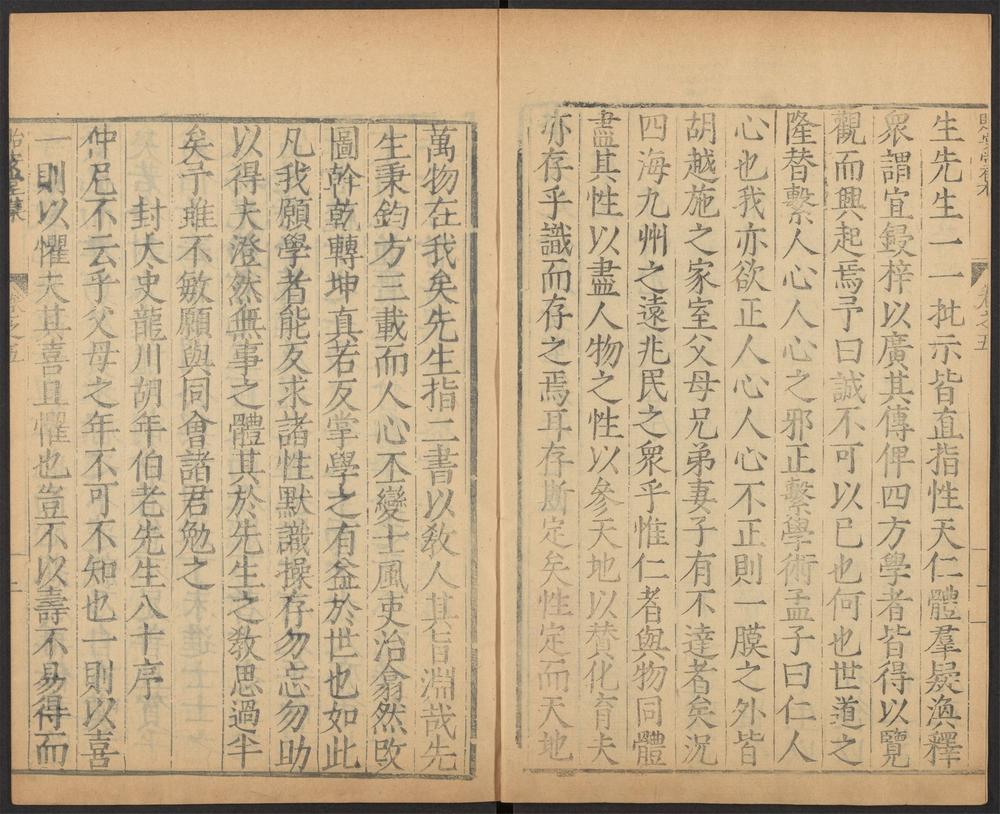 生先生一一批示皆直指性天仁體羣疑渙釋
衆謂宜鋟梓以廣其傳俾四方學者皆得以覽
觀而興起焉予曰誠不可以已也何也世道之
隆替繫人心人心之邪正繫學術孟子曰仁人
心也我亦欲正人心人心不正則一膜之外皆
胡越施之家室父母兄弟妻子有不達者矣況
四海九州之遠兆民之衆乎惟仁者與物同體
盡其性以盡人物之性以參天地以賛化育夫
亦存乎識而存之焉耳存斯定矣性定而天地
卷之五
萬物在我矣先生指二書以敎人其旨淵哉先
生秉鈞方三載而人心丕變士風吏治翕然攺
圖斡乾轉坤真若反掌學之有益於世也如此
凡我願學者能反求諸性默識操存勿忘勿助
以得夫澄然無事之體其於先生之敎思過半
矣予雖不敏願與同會諸君勉之
封大史龍川胡年伯老先生八十序
仲尼不云乎父母之年不可不知也一則以喜
一則以懼夫其喜且懼也豈不以壽不易得而
卷之五